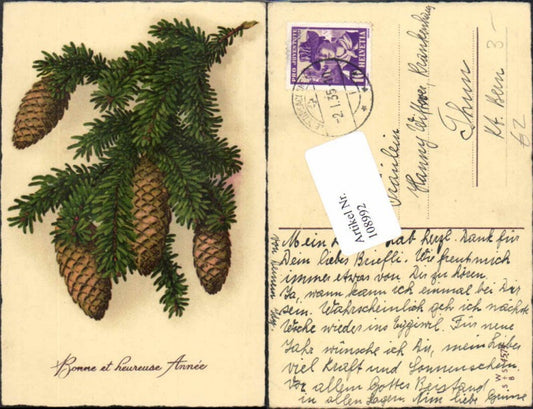 Bonne et heureuse Année
PRO JUVENTUTE
10 HELVETIA
2.I.35
Fräulein
Hanny
Krankenhaus
Thun
Kt. Bern
3-
62
Artikel Nr.
108992
Mein hab herzl. Dank für
Dein liebes Briefli. Wie freut mich
immer etwas von Dir zu hören.
Ja, wann kann ich einmal bei Dir
sein. Wahrscheinlich geh ich nächste
Woche wieder ins Eggiwil. Für neue
Jahr wünsche ich Dir, mein liebes
viel Kraft und Sonnenschein.
Vor allem Gottes Beistand
in allen Lagen. Nun liebe Grüsse
von Deinem